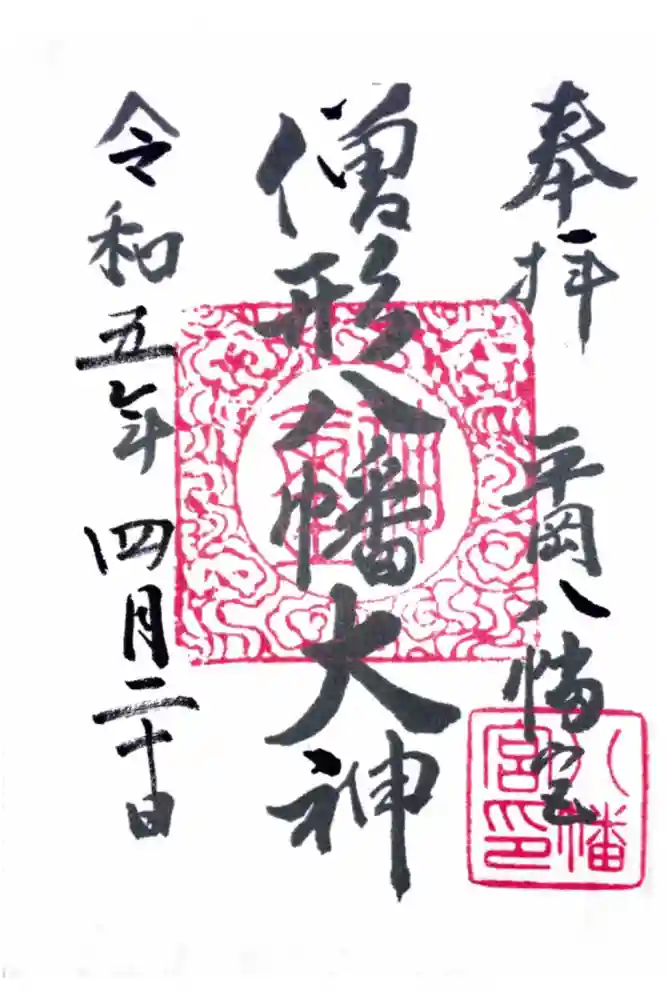 奉拝 平岡八幡宮
僧形八幡大神
令和五年 四月二十日
八幡
宮印